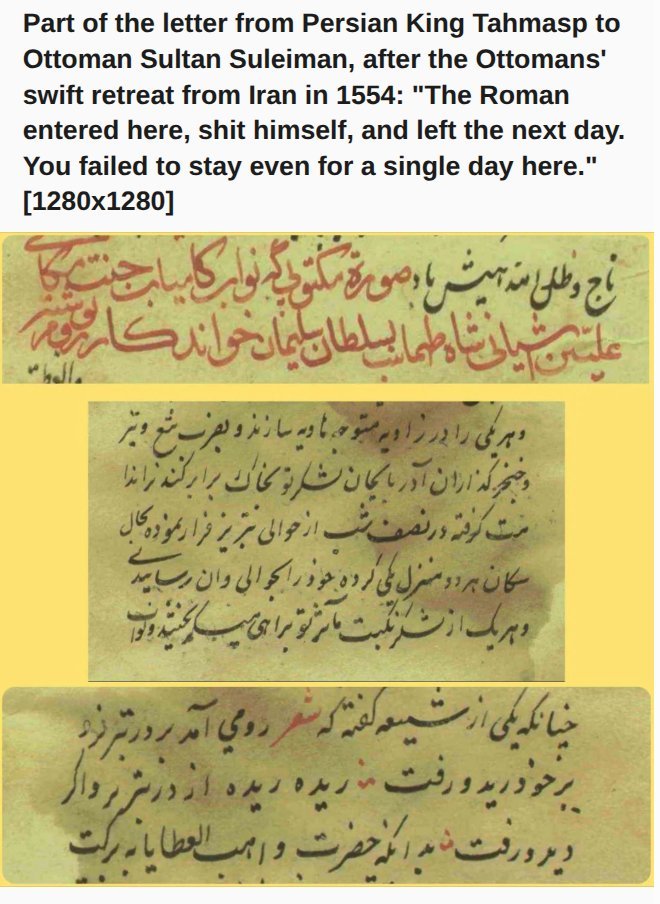 Part of the letter from Persian King Tahmasp to
Ottoman Sultan Suleiman, after the Ottomans'
swift retreat from Iran in 1554: "The Roman
entered here, shit himself, and left the next day.
You failed to stay even for a single day here."
[1280x1280]
تاج و ظل الله همیش باد صورة مکتوبی که نواب کامیاب جنت مکا
علیین شاه طهماسب بسلطان سلیمان خواندکار روم
وهر یکی را در زاویه متوجه هاویه سازند و بضرب تیغ و تبر
وخنجر گذاران آذربایجان لشکر تو بخاک برابر کنند
گرفته در نصف شب از حوالی تبریز فرار نموده بحال
سکان هر دو منزل یکی کرده خود را بحوالی وان رسانیدی
وهر یک از لشکر نکبت مآثر تو براهی
چنانکه یکی از شیعه گفته که شعر رومی آمد بر در تبریز
بر خود رید و رفت ریده ریده از در تبریز واگر
دید و رفت بدانکه حضرت واهب العطایا به برکت